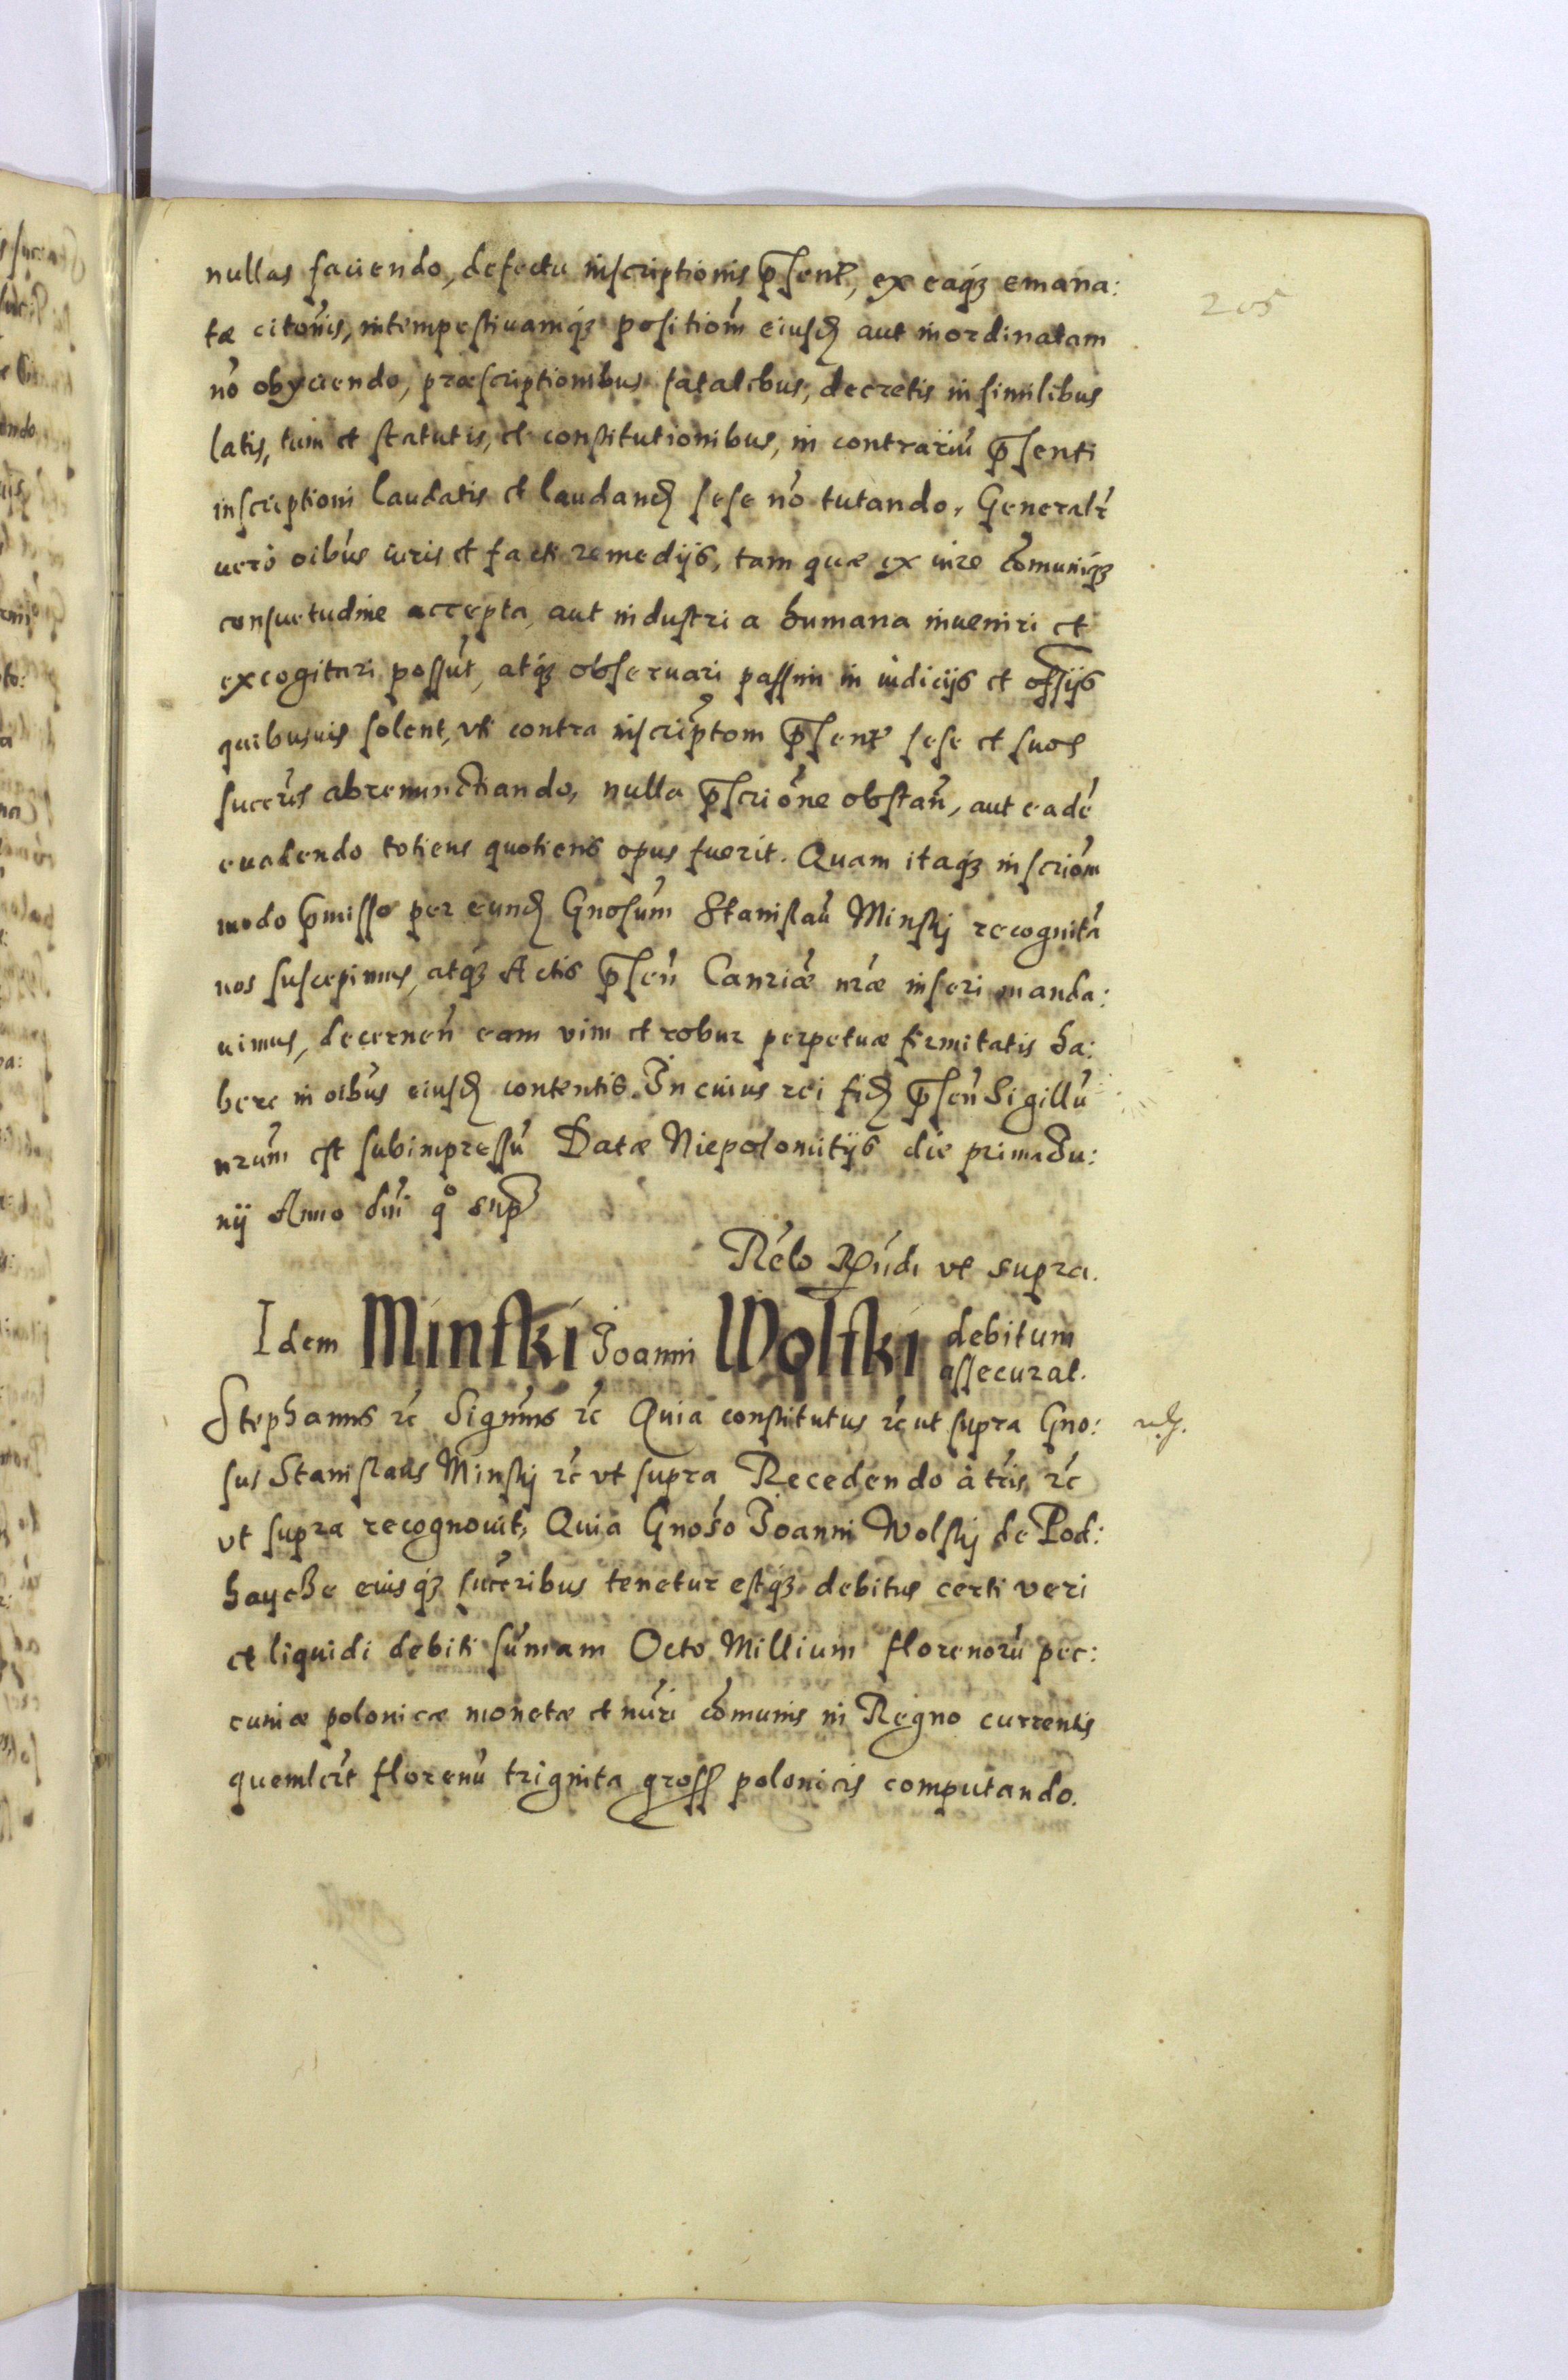 205
nullas faciendo, defectu inscriptionis p̄sent, ex eaq́ꝫ emana:
tæ citońis, intempestiuamq́ꝫ positiom̃ eiusd aut inordinatam
nō obijciendo, præscriptionibus fatalibus, decretis in similibus
latis, tum et statutis, et constitutionibus, in contrariū p̄senti
inscriptioni laudatis et laudand sese nō tutando, Generalr̃
uerò oibus iuris et facti remedijs, tam quæ ex iure cōmuniq́ꝫ
consuetudine accepta, aut industria humana inueniri et
excogitari possūt, atq́ꝫ obseruari passim in iudicijs et offijs
quibusuis solent, vti contra inscriptom p̄sent sese et suos
succr̃is abrenunctiando, nulla p̄scriōne obstañ, aut eadē
euadendo totiens quotiens opus fuerit. Quam itaq́ꝫ inscriōm
modo p̄misso per eund Gnosūm Stanislaū Minskj recognitā
nos suscepimus, atq́ꝫ Actis p̄señ Canriæ nr̃æ inseri manda:
uimus, decerneñ eam vim et robur perpetuæ firmitatis ha:
bere in oibus eiusd contentis. In cuius rei fid p̄señ Sigillū
nr̃um est subimpressū Datæ Niepolomitijs die prima Iu:
nij Anno dñi qͦ sup̄
Rēlo Rñdi vt supra.
Idem Minski Joanni Wolski debitum
assecurat.
Stephanus rć Signm̃s rć Quia constitutus rć ut supra Gno:
sus Stanislaūs Minskj rć vt supra Recedendo à tr̃is rć
vt supra recognouit, Quia Gnoso Joanni Wolskj de Pod:
hayche eiusq́ꝫ succr̃ibus tenetur estq́ꝫ debitus certi veri
et liquidi debiti sūmam Octo Millium florenorū pec:
cuniæ polonicæ monetæ et nūri cōmunis in Regno currentis
quemlr̃t florenū triginta gross polonicis computando.